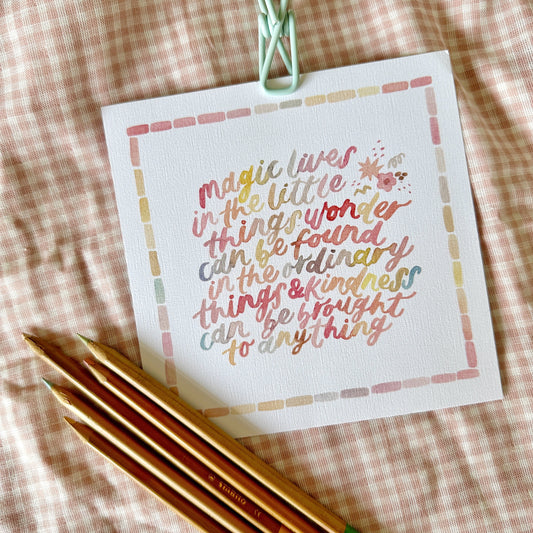 magic lives
in the little
things wonder
can be found
in the ordinary
things & kindness
can be brought
to anything
STABILO
CE